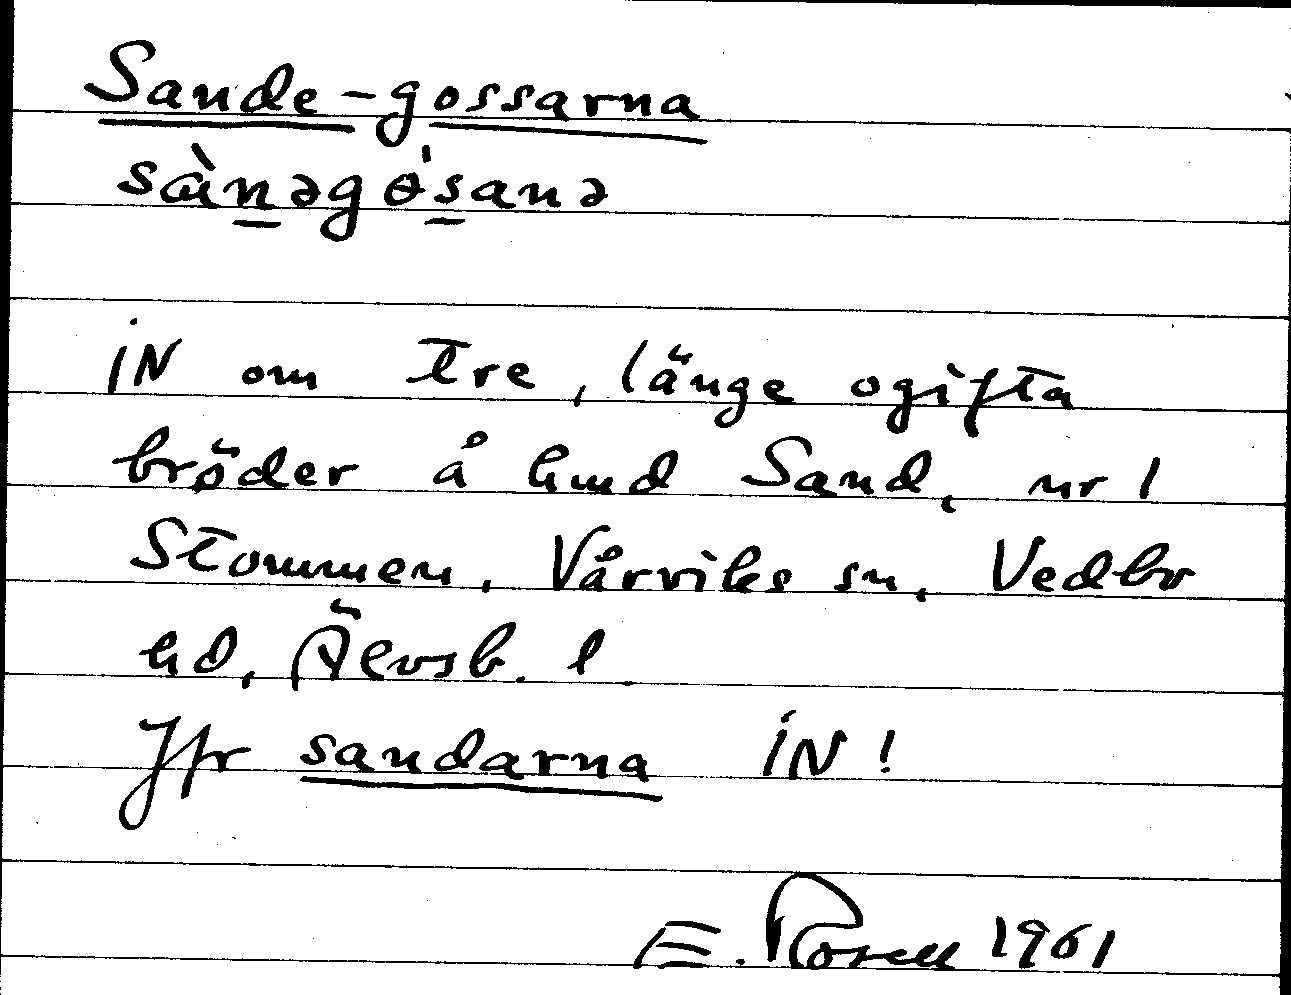 Sande-gossarna
sànəgɵ̀sanə
iN om tre, länge ogifta
bröder å hmd Sand, nr 1
Stommen, Vårviks sn, Vedbo
hd, Älvsb. l.
Jfr sandarna iN!
E. Rosell 1961